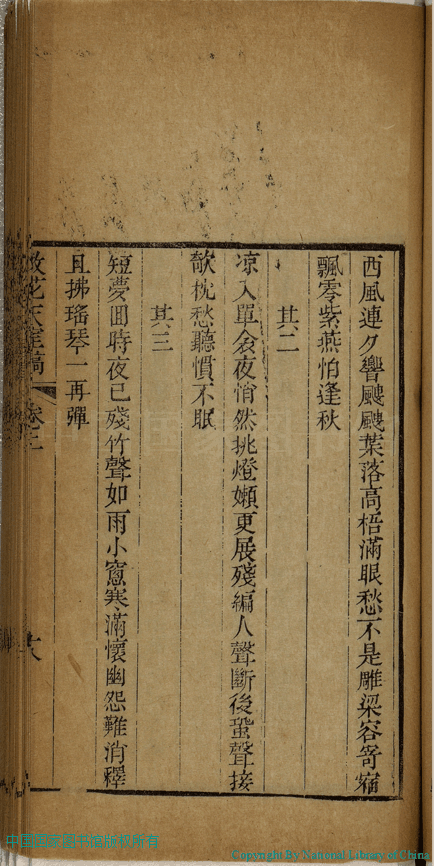 西風連夕響颼颼葉落高梧滿眼愁不是雕梁容寄宿
飄零紫燕怕逢秋
其二
凉入單衾夜悄然挑燈嬾更展殘編人聲斷後蛩聲接
欹枕愁聽慣不眠
其三
短夢囬時夜已殘竹聲如雨小窻寒滿懷幽怨難消釋
且拂瑤琴一再彈
花天
稿
卷二
十八
中国国家图书馆版权所有
Copyright By National Library of China